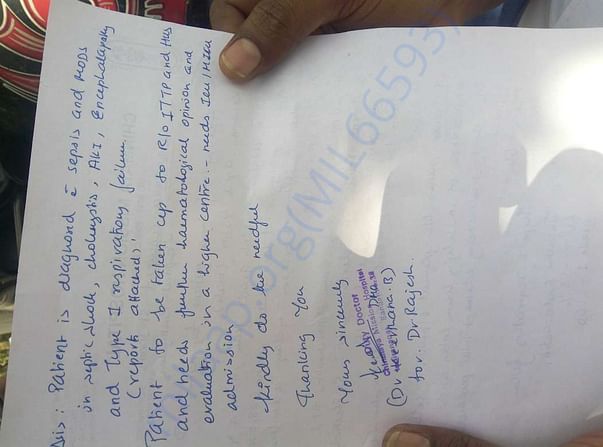 sis: Patient is diagnosed c̄ sepsis and MODS
in septic shock, cholecystis, AKI, Encephalopathy
and Type I respiratory failure
(report attached).
Patient to be taken up to R/o ITTP and HUS
and needs further haematological opinion and
evaluation in a higher centre. - needs ICU/MICU
admission
Kindly do the needful
Thanking You
Yours sincerely
Duty Doctor
Hospital
(Dr
for. Dr Rajesh.
.org(MIL66593